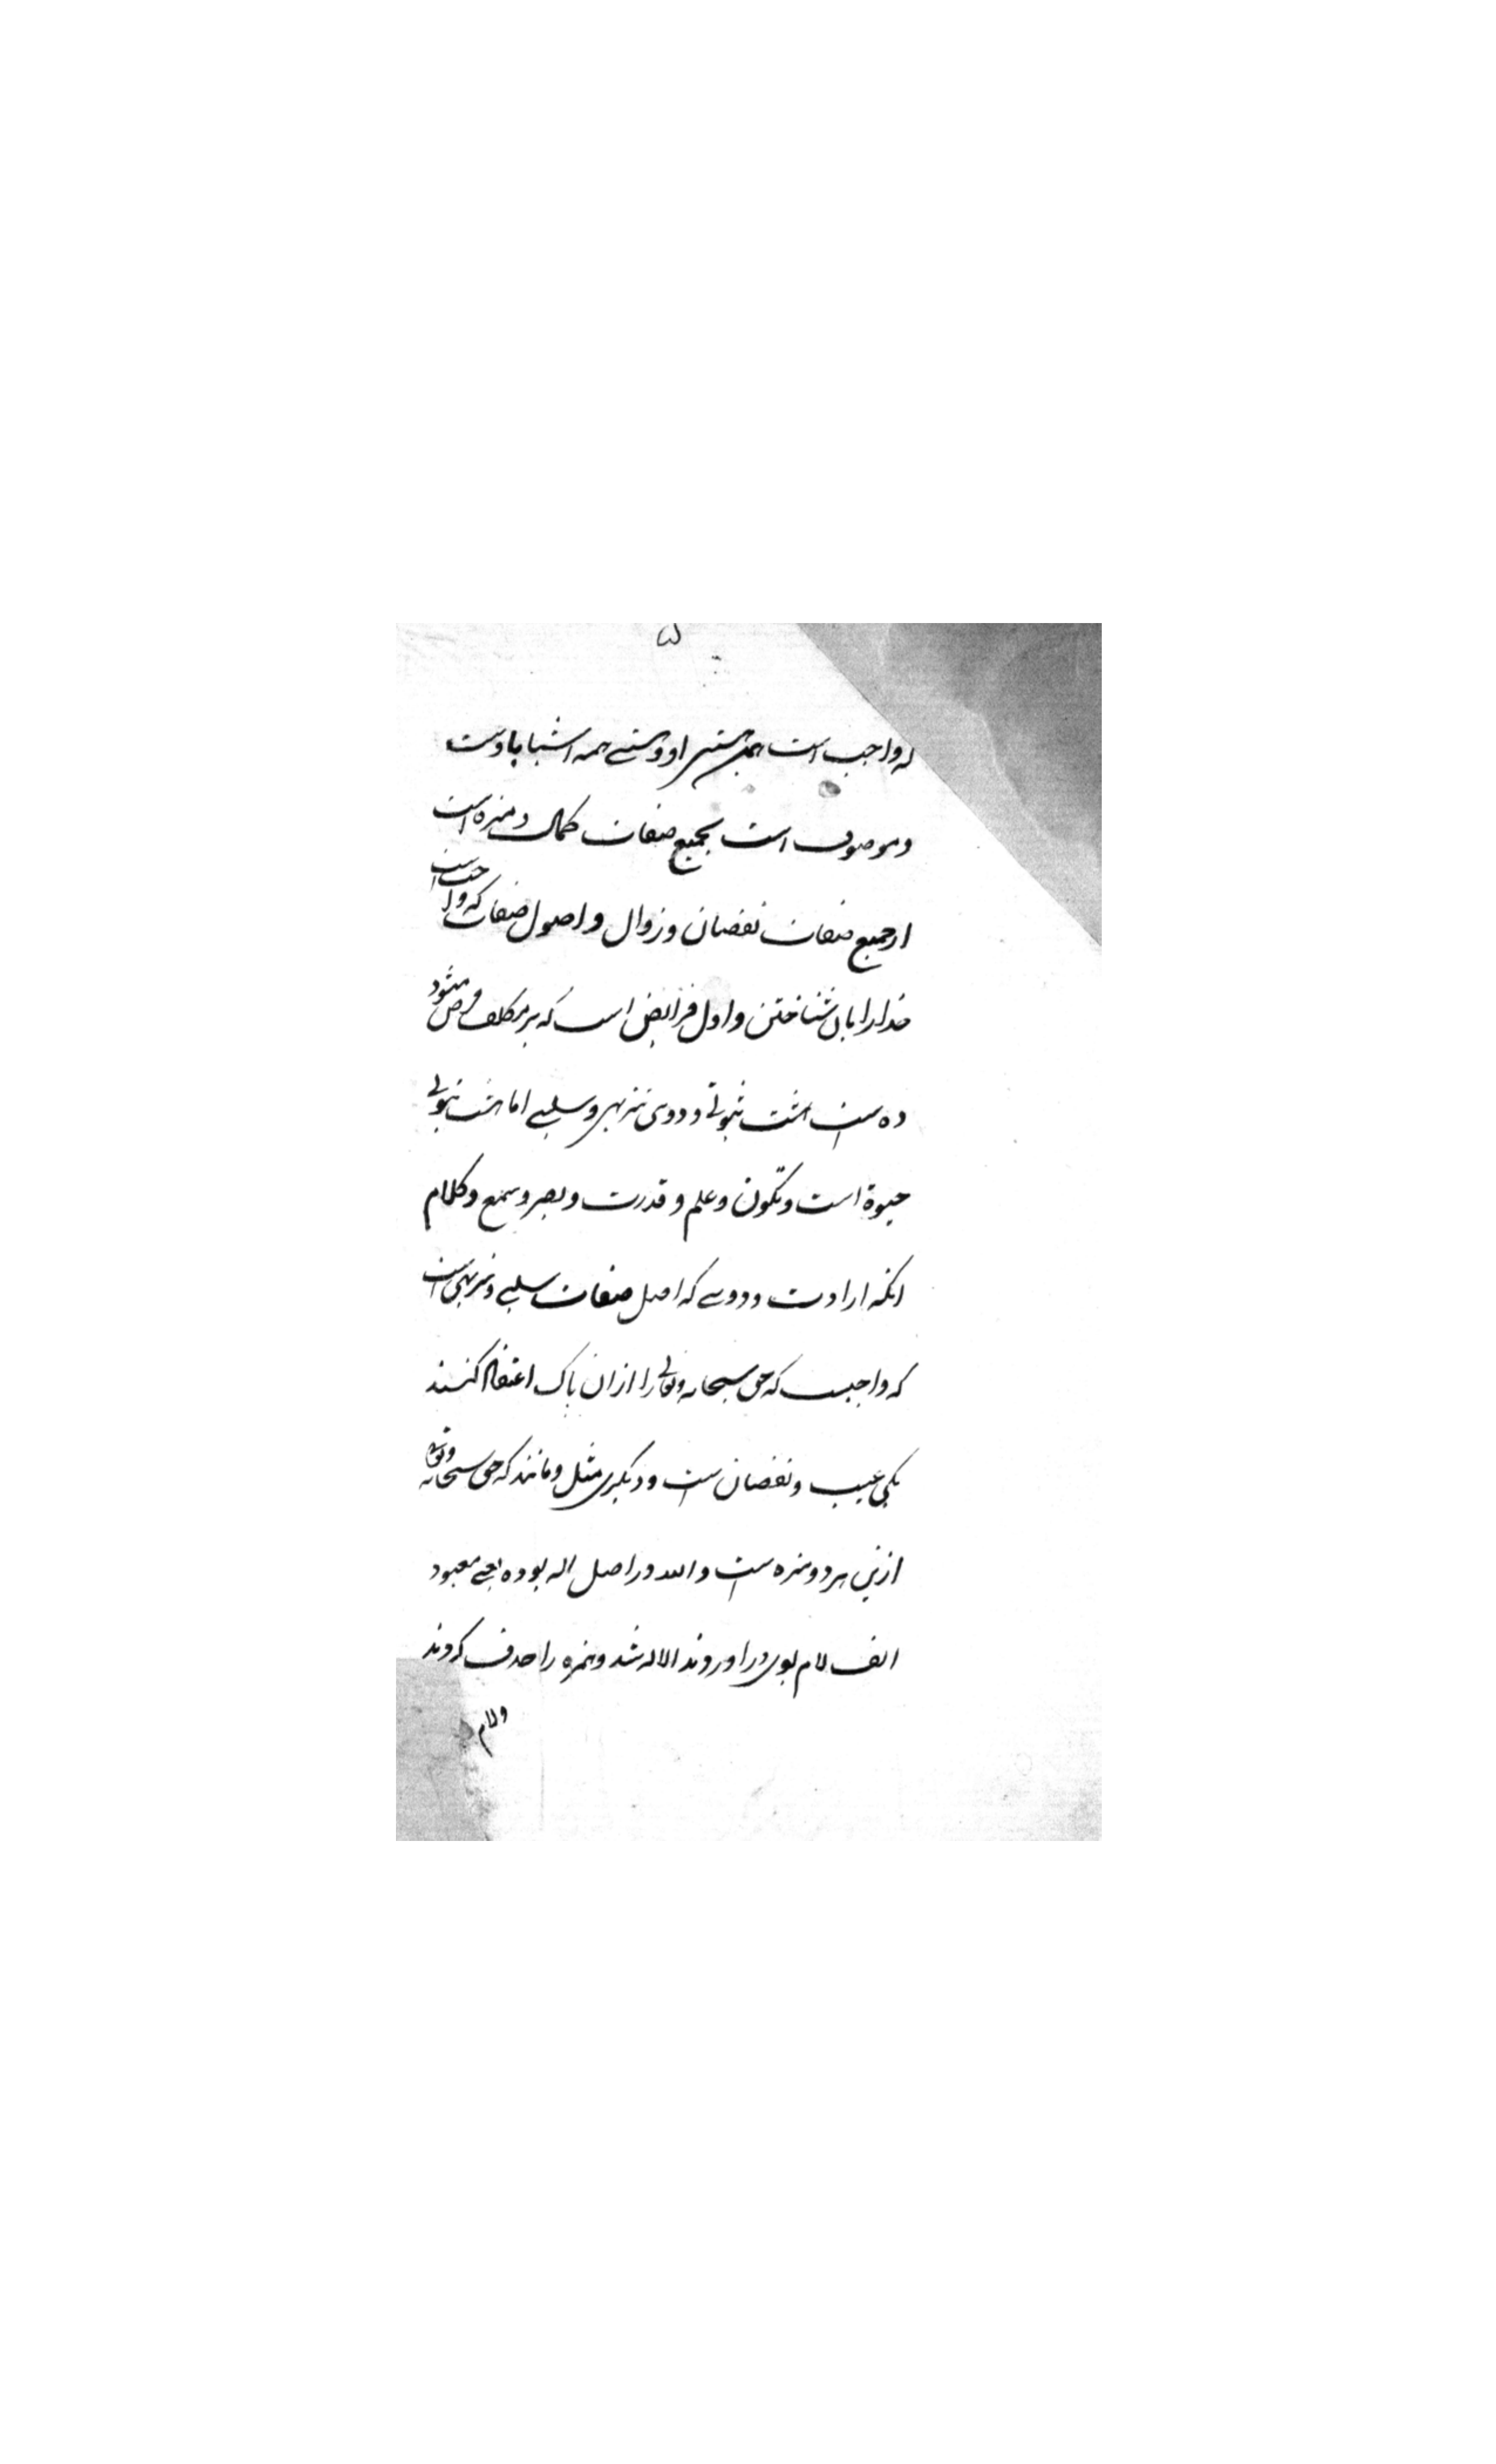 ۵
که واجب است همیشه هستی او و هستی همه اشیا باوست
و موصوف است بجمیع صفات کمال و منزه است
از جمیع صفات نقصان و زوال و اصول صفات که واجب است
خدا را بان شناختن و اول فرائض است که بر مکلف فرض میشود
ده است هشت ثبوتی و دوی تنزیهی و سلبی اما هشت ثبوتی
حیوة است و تکوین و علم و قدرت و بصر و سمع و کلام
انکه ارادت و دویی که اصل صفات سلبی و تنزیهی است
که واجبست که حق سبحانه و تعالی را ازان پاک اعتقاد کنند
یکی عیب و نقصان است و دیگری مثل و مانند که حق سبحانه و تعالی
ازین هر دو منزه است و الله در اصل اله بوده بمعنی معبود
الف لام بوی در اوردند الاله شد و همزه را حذف کردند
و لام